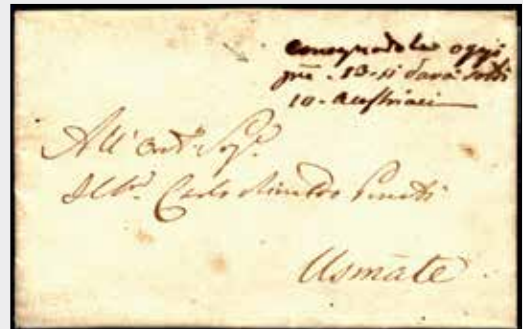 consegnadola oggi
pñe. 13. si darà soldi
10. austriaci
All' Ort.º Sig.r
Carlo
Usmate